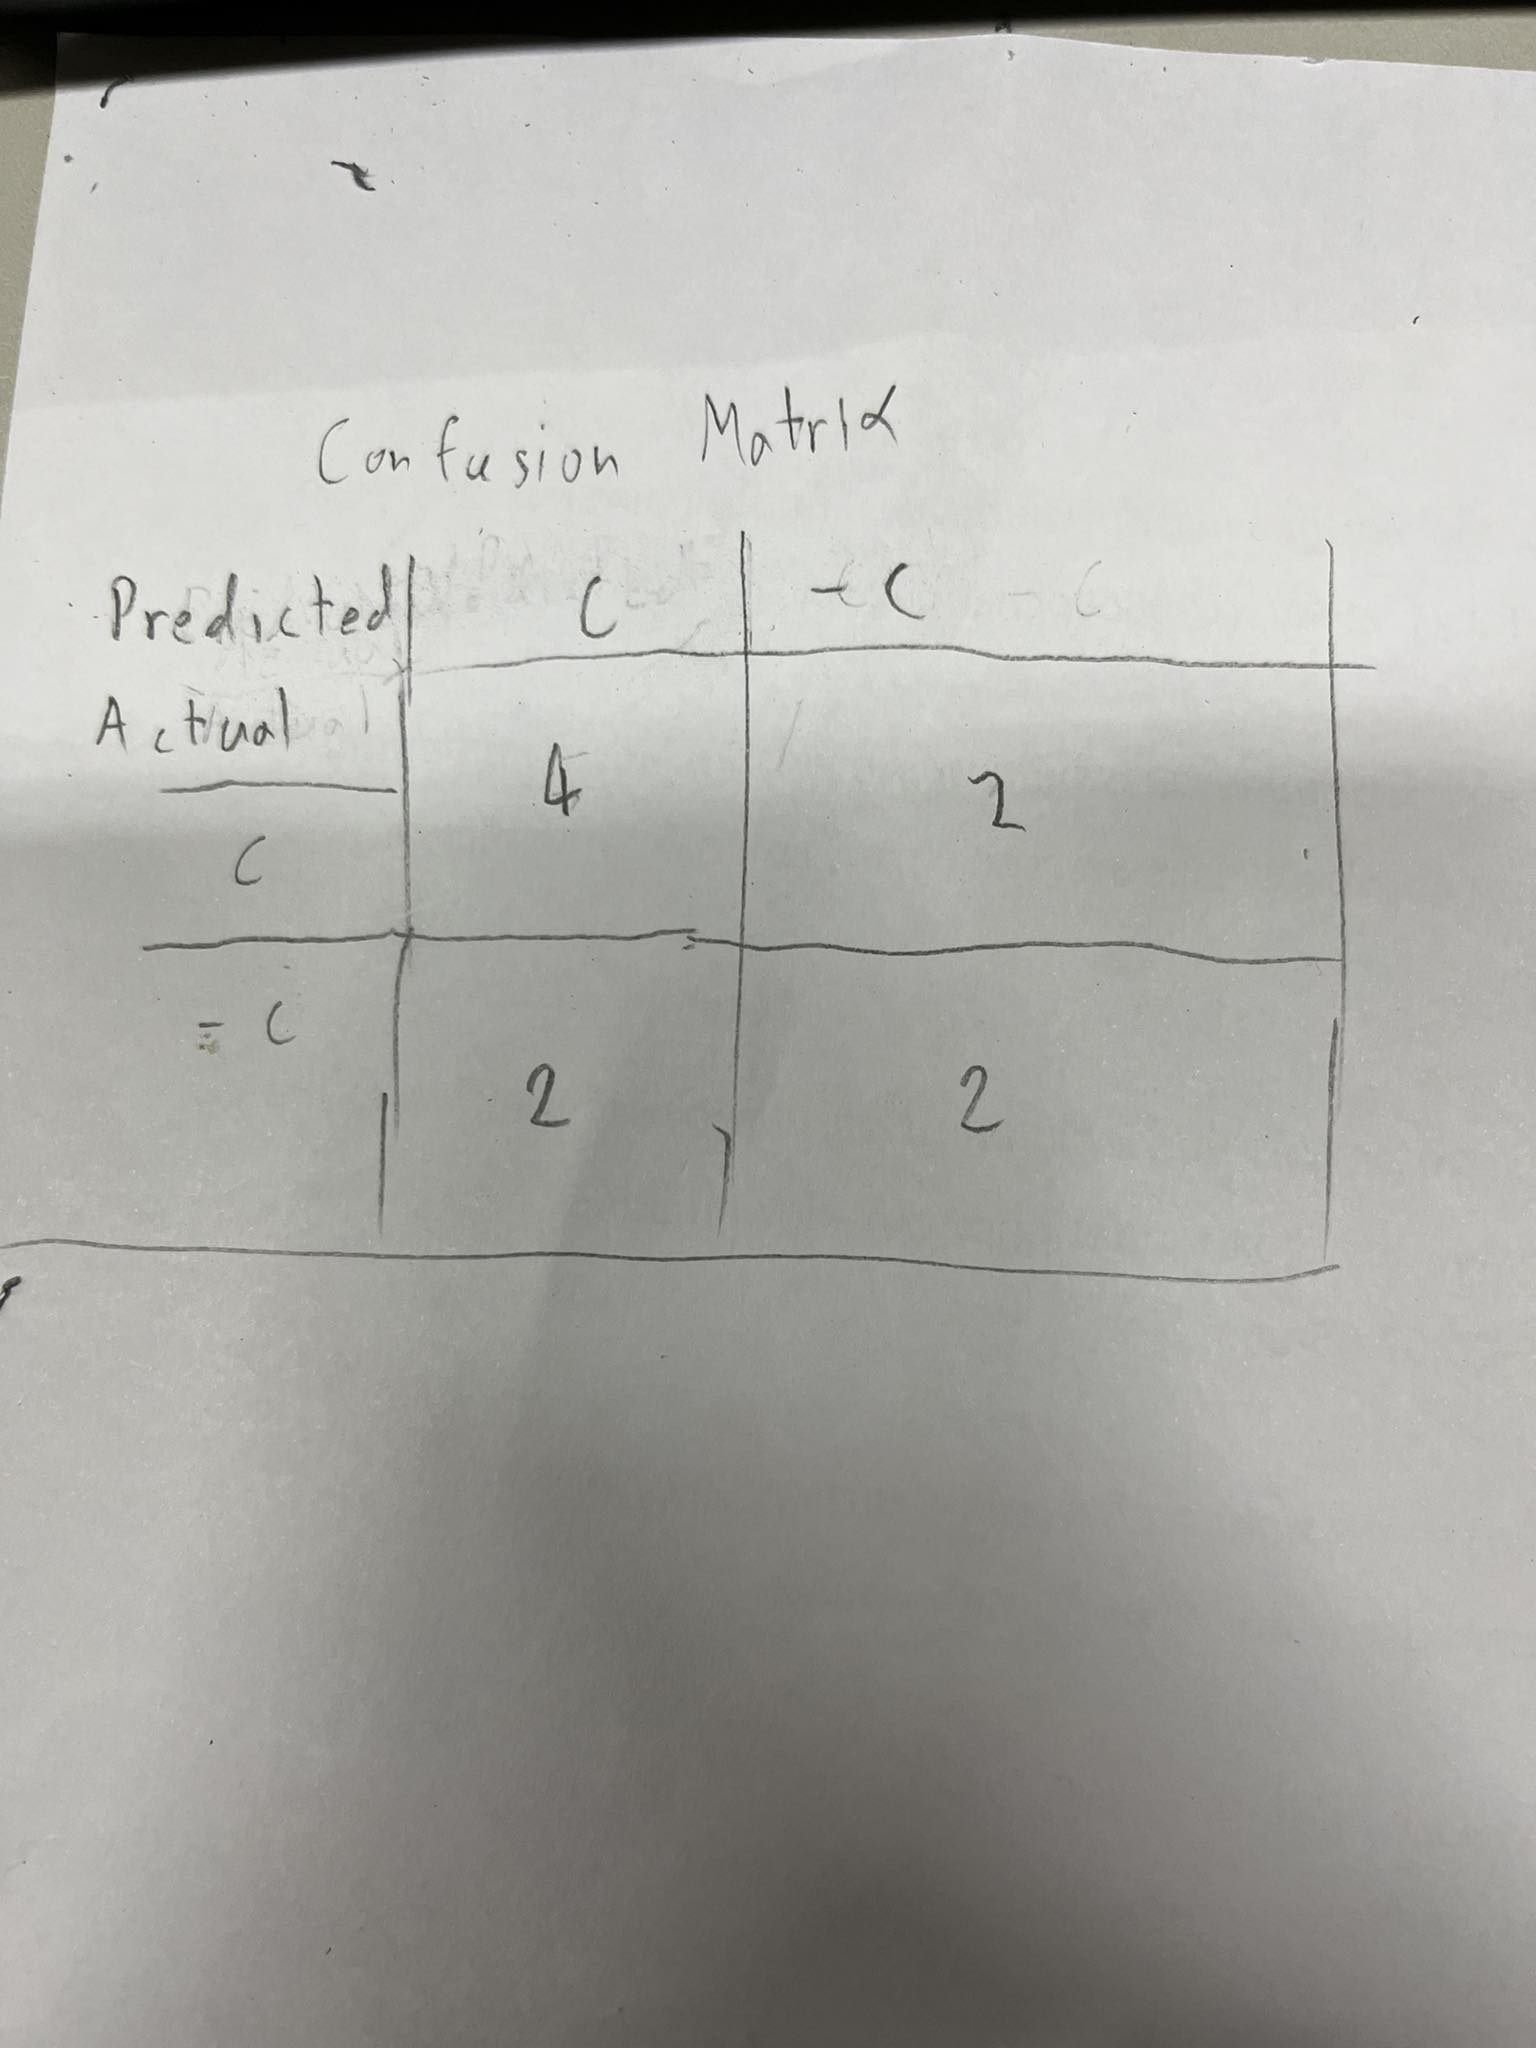 Confusion Matrix
Predicted C ¬C
Actual
4 2
C
- C
2 2